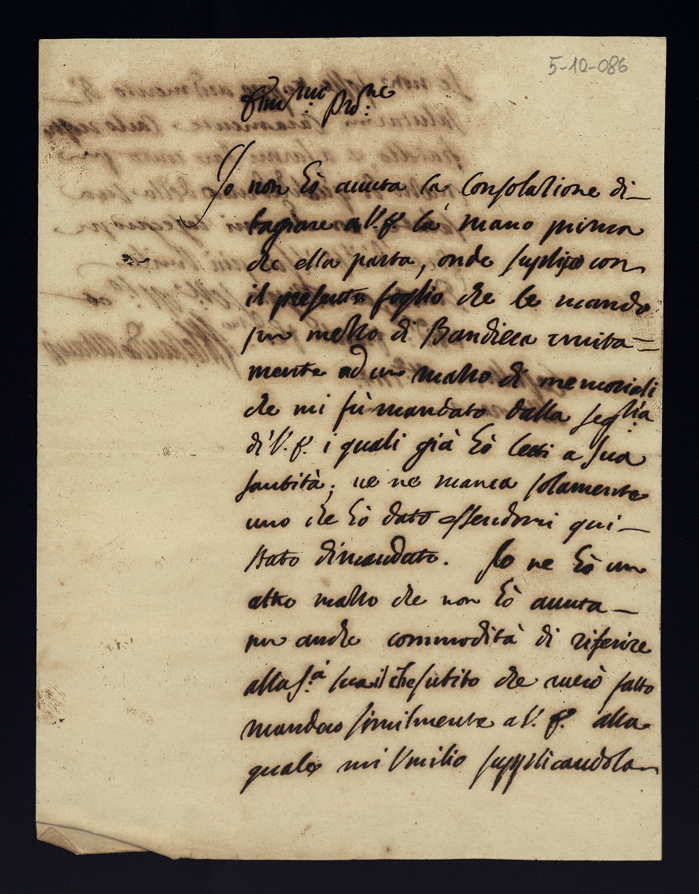 5-10-086
Em.mo Pro.ne
Io non hò avuta la consolazione di
bagiare a V. E. la mano prima
che ella parta, onde suplisco con
il presente foglio che le mando
per mezzo di Bandiera unita=
mente ad un mazzo di memoriali
che mi fù mandato dalla
di V. E. i quali già hò letti a Sua
Santità; ve ne manca solamente
uno che hò dato essendomi qui
stato dimandato. Io ne hò un
altro mazzo che non hò avuta
per anche commodità di riferire
alla S.tà Sua il che subito che averò fatto
mandarò similmente a V. E. alla
quale mi umilio supplicandola